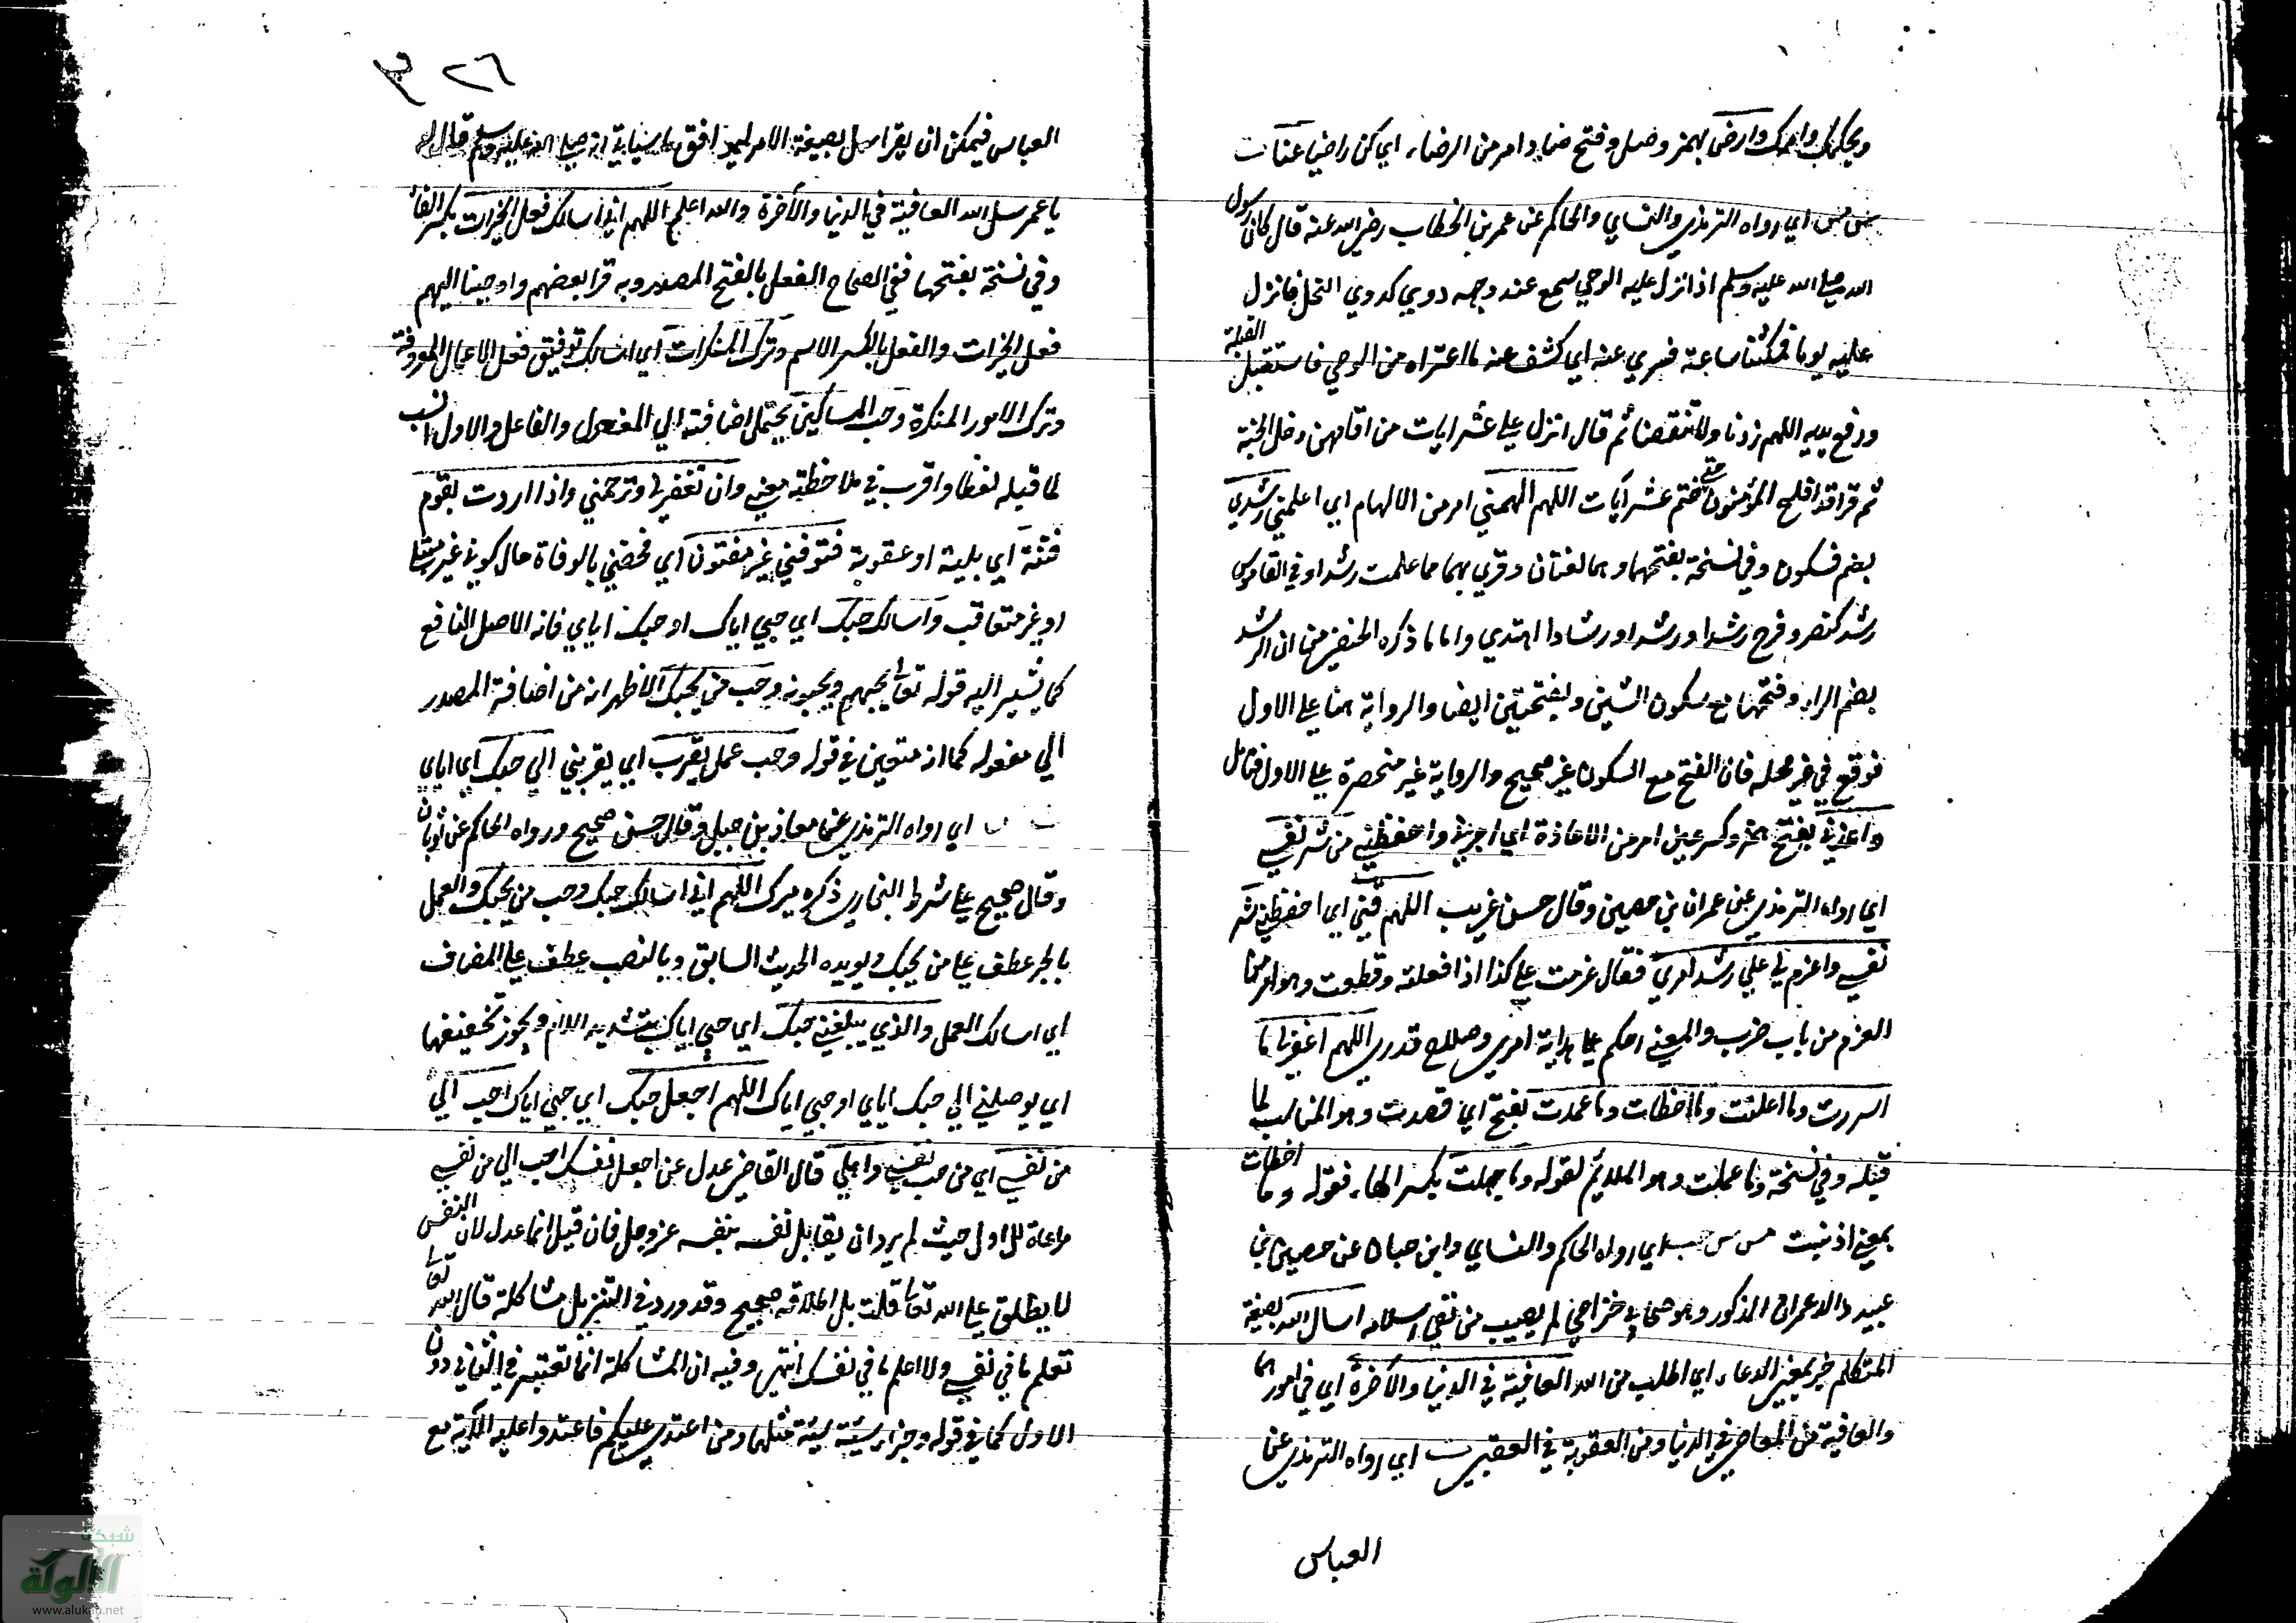 وارض بهمز وصل وفتح ضاد امر من الرضاء اي كن راضيا عنا ت
س مس اي رواه الترمذي والنساي والحاكم عن عمر بن الخطاب رضي الله عنه قال كان رسول
الله صلى الله عليه وسلم اذا نزل عليه الوحي سمع عند وجهه دوي كدوي النحل فانزل
عليه يوما فمكثنا ساعة فسري عنه اي كشف عنه ما اعتراه من الوحي فاستقبل القبلة
ورفع يديه اللهم زدنا ولا تنقصنا ثم قال انزل علي عشر ايات من اقامهن دخل الجنة
ثم قرا قد افلح المؤمنون حتى ختم عشر آيات اللهم الهمني امر من الالهام اي اعلمني رشدي
بضم فسكون وفي نسخة بفتحهما وهما لغتان وقري بهما مما علمت رشدا وفي القاموس
رشد كنصر وفرح رشدا ورشدا ورشادا اهتدي واما ما ذكره الحنفي من ان الرشد
بضم الراء وفتحها مع سكون الشين وبفتحتين ايضا والرواية هنا على الاول
فوقع في غير محله فان الفتح مع السكون غير صحيح والرواية غير منحصرة على الاول فتامل
واعذني بفتح همز وكسر عين امر من الاعاذة اي اجرني واحفظني من شر نفسي
اي رواه الترمذي عن عمران بن حصين وقال حسن غريب اللهم قني اي احفظني شر
نفسي واعزم لي على رشد امري فقال عزمت على كذا اذا فعلته وقطعت وهو امر من
العزم من باب ضرب والمعني احكم لي هداية امري وصلاح قدري اللهم اغفر لي ما
اسررت وما اعلنت وما اخطات وما عمدت بفتح اي قصدت وهو المناسب لما
قبله وفي نسخة وما عملت وهو الملائم لقوله وما جهلت بكسر الهاء فقوله وما اخطات
بمعني اذنبت مس س حب اي رواه الحاكم والنساي وابن حبان عن حصين بن
عبيد والد عمران المذكور وهو صحابي خزاعي لم يصب من نفي اسلامه اسال الله بصيغة
المتكلم خبر بمعني الدعاء اي اطلب من الله العافية في الدنيا والآخرة اي في امورهما
والعافية من المعاصي في الدنيا ومن العقوبة في العقبي ت اي رواه الترمذي عن
العباس
٢٦
العباس فيمكن ان يقرا سل بصيغة الامر ليوافق ما سياتي انه صلى الله عليه وسلم قال له
يا عم سل الله العافية في الدنيا والآخرة والله اعلم اللهم اني اسالك فعل الخيرات بكسر الفاء
وفي نسخة بفتحها ففي الصحاح الفعل بالفتح المصدر وبه قرا بعضهم واوحينا اليهم
فعل الخيرات والفعل بالكسر الاسم وترك المنكرات اي اسالك توفيق فعل الاعمال المعروفة
وترك الامور المنكرة وحب المساكين يحتمل اضافته الي المفعول والفاعل والاول انسب
لما قبله لفظا واقرب في ملاحظة معني وان تغفر لي وترحمني واذا اردت بقوم
فتنة اي بلية او عقوبة فتوفني غير مفتون اي فخصني بالوفاة حال كوني غير مبتلا
او غير متعاقب واسالك حبك اي حبي اياك او حبك اياي فانه الاصل النافع
كما يشير اليه قوله تعالى يحبهم ويحبونه وحب من يحبك الاظهر انه من اضافة المصدر
الي مفعوله كما انه متعين في قوله وحب عمل يقرب اي يقربني الي حبك اي اياي
ت اي رواه الترمذي عن معاذ بن جبل وقال حسن صحيح ورواه الحاكم عن ثوبان
وقال صحيح على شرط البخاري ذكره ميرك اللهم اني اسالك حبك وحب من يحبك والعمل
بالجر عطف على من يحبك ويويده الحديث السابق وبالنصب عطف على المضاف
اي اسالك العمل والذي يبلغني حبك اي حبي اياك بتشديد اللام ويجوز تخفيفها
اي يوصلني الي حبك اياي او حبي اياك اللهم اجعل حبك اي حبي اياك احب الي
من نفسي اي من حب نفسي واهلي قال القاضي عدل عن اجعل نفسك احب الي من نفسي
مراعاة للادب حيث لم يرد ان يقابل نفسه بنفسه عز وجل فان قيل انما عدل لان النفس
لا يطلق على الله تعالى قلت بل اطلاقه صحيح وقد ورد في التنزيل مشاكلة قال الله تعالى
تعلم ما في نفسي ولا اعلم ما في نفسك انتهى وفيه ان المشاكلة انما تعتبر في الثاني دون
الاول كما في قوله وجزاء سيئة سيئة مثلها ومن اعتدي عليكم فاعتدوا عليه الآية مع
شبكة
الألوكة
www.alukah.net